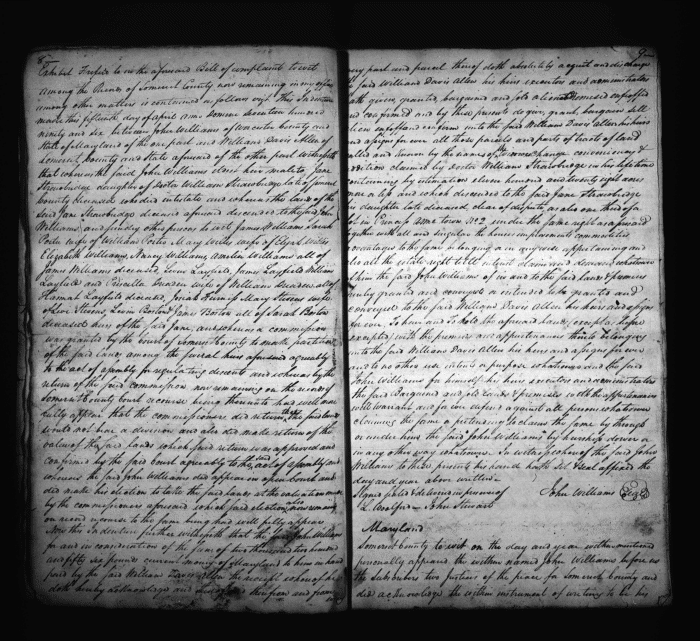 Exhibit Prefered to in the aforesaid Bill of complaint to wit
Among the Records of Somerset County now remaining in my office
among other matters is contained as follows viz. This Indenture
made this fifteenth day of april anno domini seventeen hundred
ninety and six between John Williams of Worcester County and
State of Maryland of the one part and William Davis Allen of
Somerset County and State aforesaid of the other part witnesseth
that whereas the said John Williams heir to Jane
Strawbridge daughter of Doctor William Strawbridge late of Somerset
County deceased who died intestate and whereas the lands of the
said Jane Strawbridge deceased aforesaid descended to the said John
Williams and sundry other persons to wit James Williams Sarah
Porter wife of William Porter Mary Willis wife of Elijah Willis
Elizabeth Williams, Nancy Williams, Amelia Williams all of
James Williams deceased, Levin Layfield, James Layfield William
Layfield and Priscilla wife of William all of
Hannah Layfield deceased, Josiah Mary Stevens wife
of Levi Stevens, Levin Boston Jane Boston all of Sarah Boston
deceased heirs of the said Jane, and whereas a commission
was granted by the court of Somerset County to make partition
of the said lands among the several heirs aforesaid agreeably
to the act of assembly for regulating descents and whereas by the
return of the said commission now remaining on the records of
Somerset County recourse being thereunto had will more
fully appear that the commissioners did return that the said lands
would not bear a division and also did make return of the
value of the said lands which said return was approved and
confirmed by the said Court agreeably to the said act of assembly and
whereas the said John Williams did appear in open court and
did make his election to take the said lands at the valuation made
by the commissioners aforesaid which said election also now remaining
on record recourse to the same being had will fully appear
Now this Indenture further witnesseth that the said John Williams
for and in consideration of the sum of two thousand two hundred
and fifty six pounds current money of Maryland to him in hand
paid by the said William Davis Allen the receipt whereof he
doth hereby acknowledge and thereof and therefrom and from
every part and parcel thereof doth absolutely acquit and discharge
the said William Davis Allen his heirs executors and administrators
hath given, granted, bargained and sold aliened enfeoffed
and confirmed and by these presents do give, grant, bargain sell
alien enfeoff and confirm unto the said William Davis Allen his heirs
and assigns for ever all those parcels and parts of tract of land
called and known by the names of exchange, conveniency &
addition claimed by Doctor William Strawbridge in his lifetime
containing by estimation eleven hundred and twenty eight acres
more or less and which descended to the said Jane Strawbridge
his daughter late deceased, clear of dispute, as also one third of a
lot in Princess Anne town No 2 under the same right as aforesaid
together with all and singular the houses emoluments commodities
advantages to the same belonging or in anywise appertaining and
also all the estate right title interest claim and demand whatsoever
him the said John Williams of in and to the said Lands & premises
hereby granted and conveyed or intended to be granted and
conveyed to the said William Davis Allen his heirs and assigns
for ever. To have and to hold the aforesaid lands, except as before
excepted, with the premises and appurtenances thereto belonging
unto the said William Davis Allen his heirs and assigns for ever
and to no other use intent or purpose whatsoever and the said
John Williams for himself his heirs executors and administrators
the said bargained and sold lands & premises with the appurtenances
will warrant and for ever defend against all persons whatsoever
claiming the same or pretending to claim the same by through
or under him the said John Williams by purchase dower or
in any other way whatsoever. In witness whereof the said John
Williams to these presents his hand hath set & seal affixed the
day and year above written
Signed sealed & delivered in presence of John Williams Seal
John Stewart
Maryland
Somerset County to wit on the day and year within mentioned
personally appeared the within named John Williams before us
the subscribers two justices of the peace for Somerset County and
did acknowledge the within instrument of writing to be his